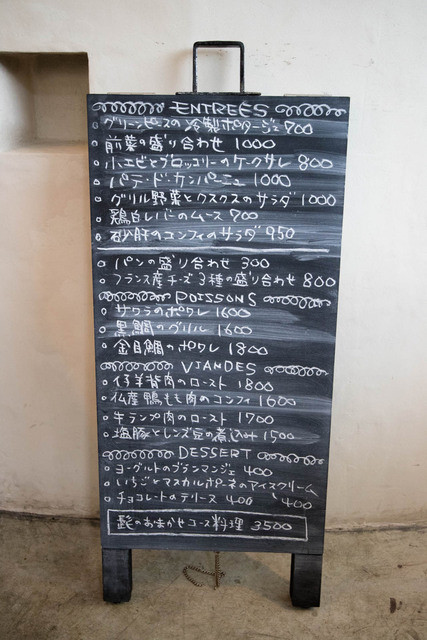 ENTREES
グリーンピースの冷製ポタージュ 700
前菜の盛り合わせ 1000
小エビとブロッコリーのケークサレ 800
パテ・ド・カンパーニュ 1000
グリル野菜とクスクスのサラダ 1000
鶏白レバーのムース 700
砂肝のコンフィのサラダ 950
パンの盛り合わせ 300
フランス産チーズ3種の盛り合わせ 800
POISSONS
サワラのポワレ 1600
黒鯛のグリル 1600
金目鯛のポワレ 1800
VIANDES
仔羊背肉のロースト 1800
仏産鴨もも肉のコンフィ 1600
牛ランプ肉のロースト 1700
塩豚とレンズ豆の煮込み 1500
DESSERT
ヨーグルトのブランマンジェ 400
いちごとマスカルポーネのアイスクリーム 400
チョコレートのテリーヌ 400
髭のおまかせコース料理 3500